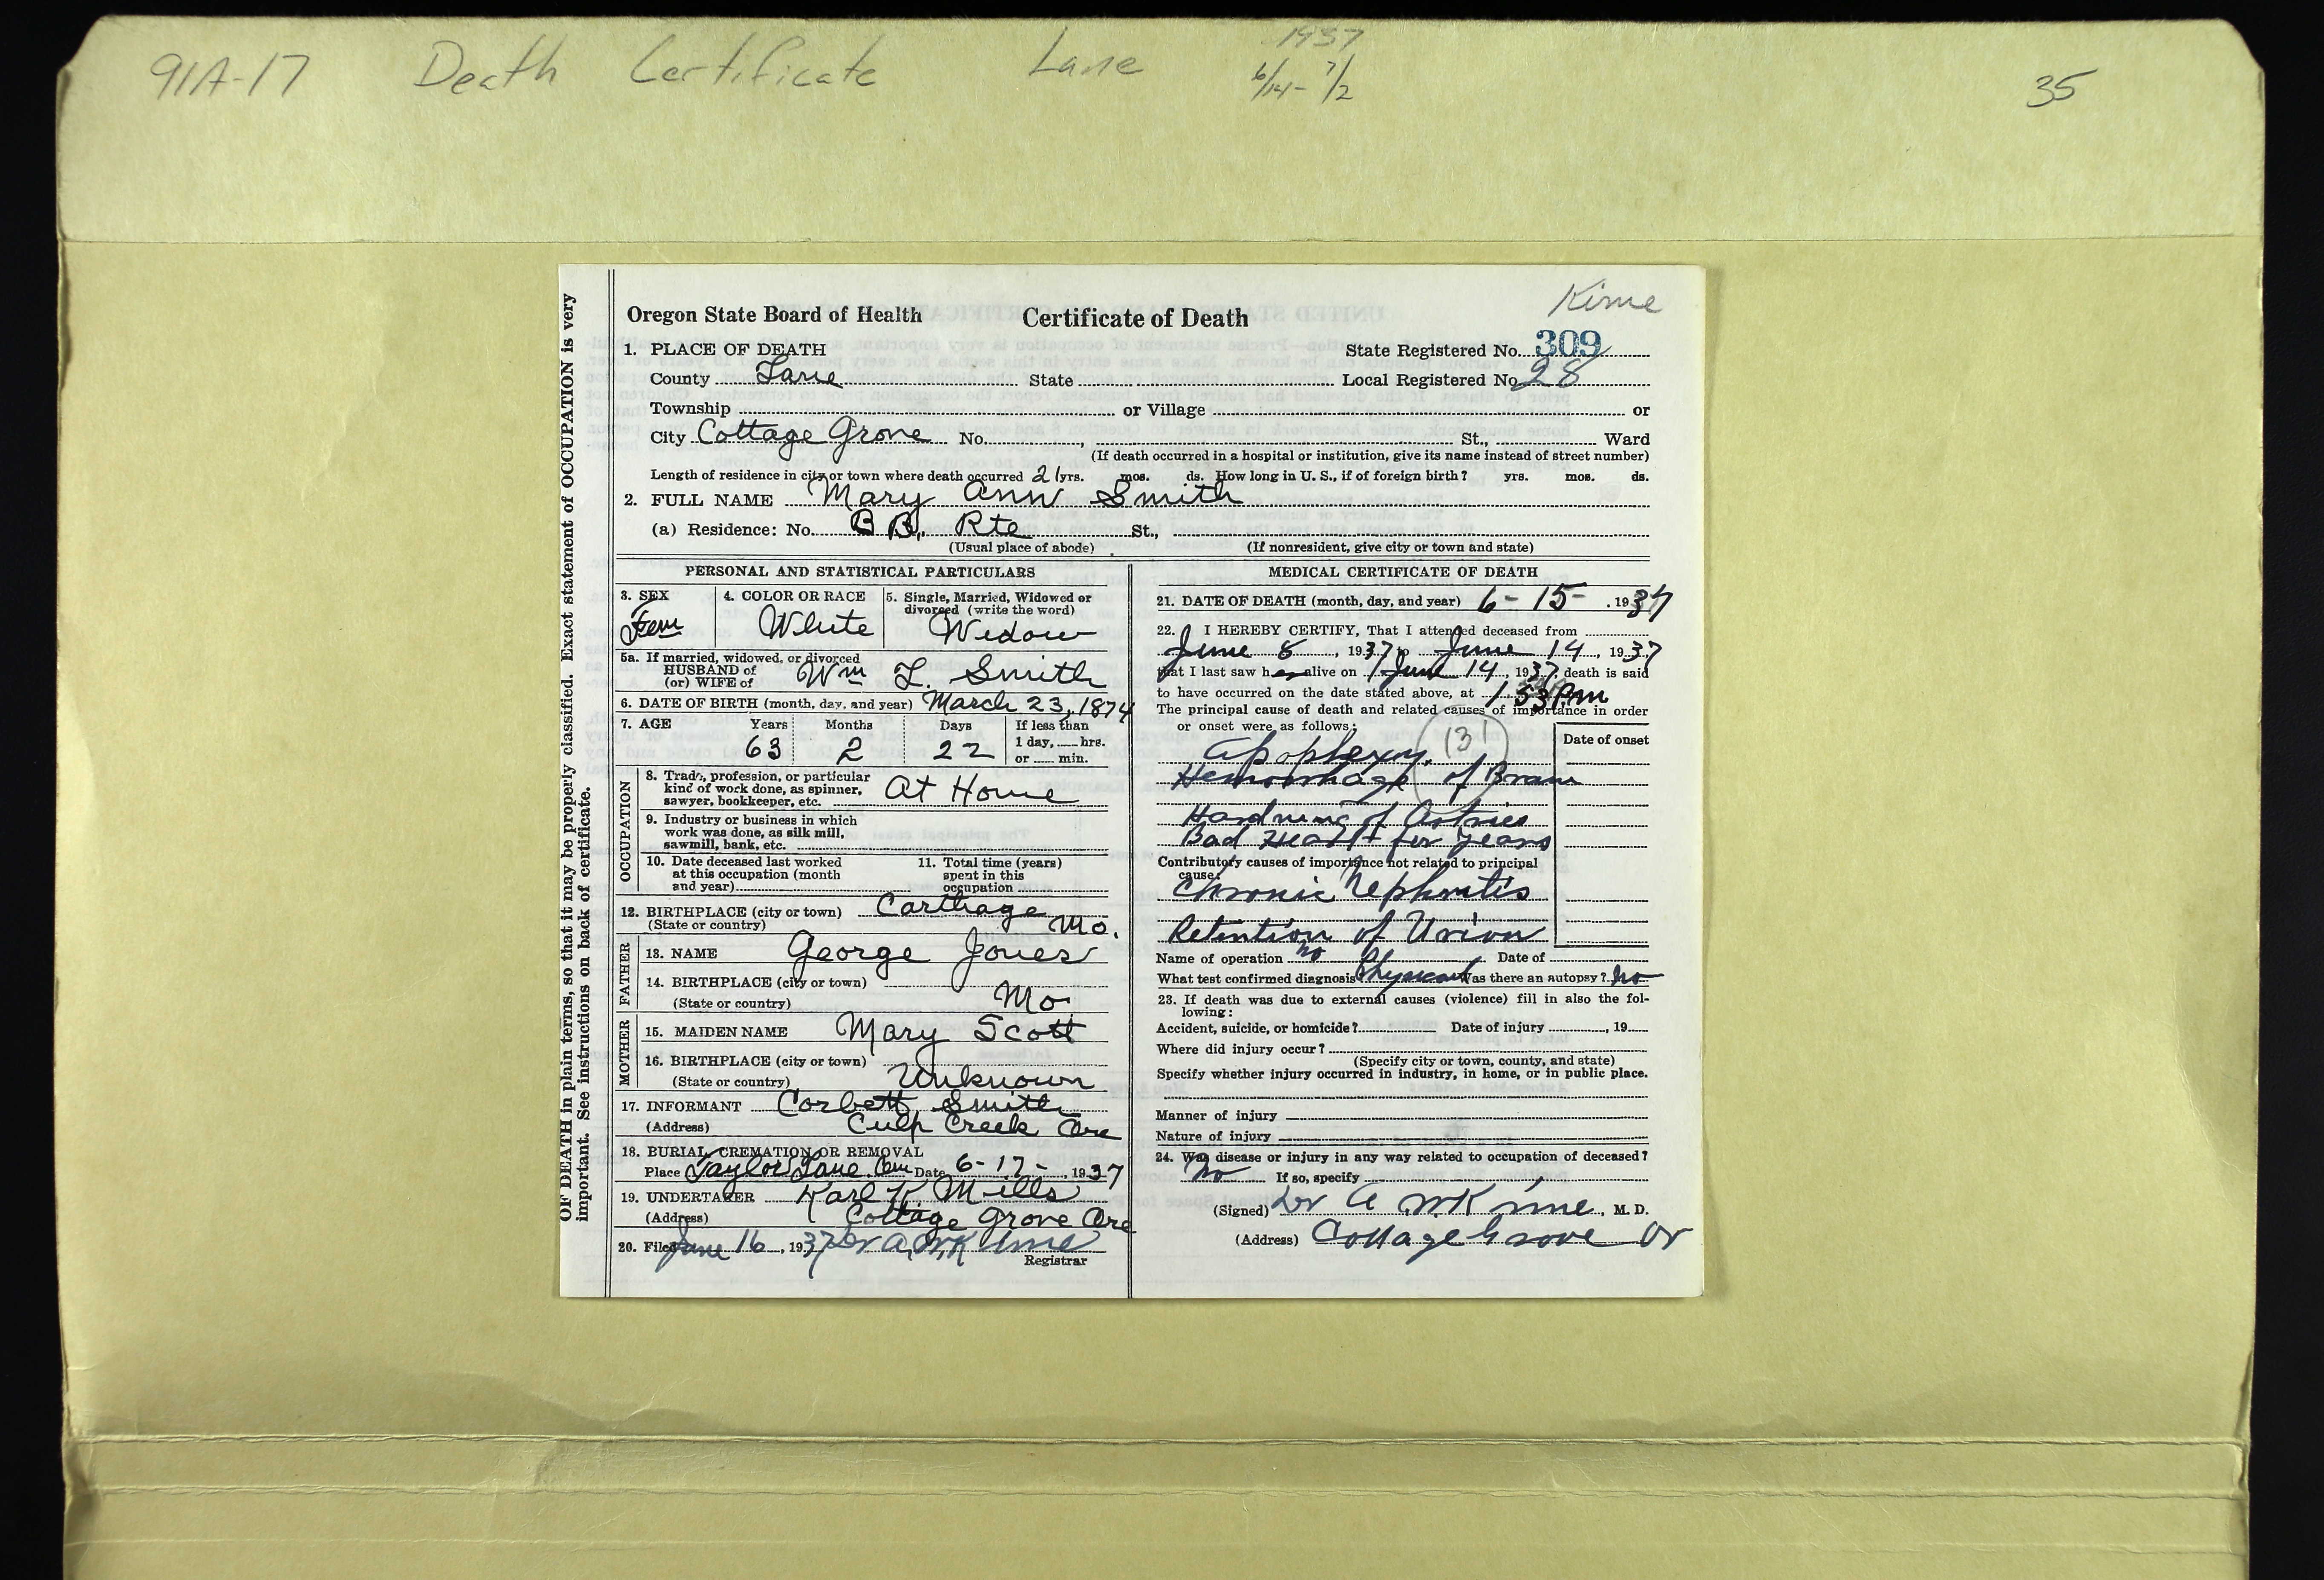 91A-17 Death Certificate Lane 1937 6/14- 7/2 35
OF DEATH in plain terms, so that it may be properly classified. Exact statement of OCCUPATION is very
important. See instructions on back of certificate.
Kime
Oregon State Board of Health Certificate of Death
State Registered No. 309
1. PLACE OF DEATH
County Lane State Local Registered No. 28
Township or Village or
City Cottage Grove No. , St., Ward
(If death occurred in a hospital or institution, give its name instead of street number)
Length of residence in city or town where death occurred 21 yrs. mos. ds. How long in U. S., if of foreign birth? yrs. mos. ds.
2. FULL NAME Mary Ann Smith
(a) Residence: No. B B, Rte St.,
(Usual place of abode) (If nonresident, give city or town and state)
PERSONAL AND STATISTICAL PARTICULARS
3. SEX 4. COLOR OR RACE 5. Single, Married, Widowed or
divorced (write the word)
Fem White Widow
5a. If married, widowed, or divorced
HUSBAND of
(or) WIFE of Wm L. Smith
6. DATE OF BIRTH (month, day, and year) March 23, 1874
7. AGE Years Months Days If less than
1 day, hrs.
or min.
63 2 22
OCCUPATION
8. Trade, profession, or particular
kind of work done, as spinner,
sawyer, bookkeeper, etc. At Home
9. Industry or business in which
work was done, as silk mill,
sawmill, bank, etc.
10. Date deceased last worked
at this occupation (month
and year)
11. Total time (years)
spent in this
occupation
12. BIRTHPLACE (city or town) Carthage
(State or country) Mo.
FATHER
13. NAME George Jones
14. BIRTHPLACE (city or town)
(State or country) Mo
MOTHER
15. MAIDEN NAME Mary Scott
16. BIRTHPLACE (city or town)
(State or country) Unknown
17. INFORMANT Corbett Smith
(Address) Culp Creek Ore
18. BURIAL, CREMATION OR REMOVAL
Place Taylor Lane Cem Date 6-17- , 1937
19. UNDERTAKER Karl K Mills
(Address) Cottage Grove Ore
20. Filed June 16, 1937 Dr A W Kime
Registrar
MEDICAL CERTIFICATE OF DEATH
21. DATE OF DEATH (month, day, and year) 6-15- , 1937
22. I HEREBY CERTIFY, That I attended deceased from
June 8, 1937 to June 14, 1937
that I last saw her alive on June 14, 1937, death is said
to have occurred on the date stated above, at 1:53 Pm
The principal cause of death and related causes of importance in order
or onset were as follows:
Date of onset
Apoplexy. 131
Hemorrhage of Brain
Hardning of Artries
Bad Heart for years
Contributory causes of importance not related to principal
cause:
Chronic Nephritis
Retention of Urion
Name of operation no Date of
What test confirmed diagnosis Physical Was there an autopsy? no
23. If death was due to external causes (violence) fill in also the fol-
lowing:
Accident, suicide, or homicide? Date of injury , 19
Where did injury occur?
(Specify city or town, county, and state)
Specify whether injury occurred in industry, in home, or in public place.
Manner of injury
Nature of injury
24. Was disease or injury in any way related to occupation of deceased?
No If so, specify
(Signed) Dr A W Kime, M. D.
(Address) Cottage Grove Or